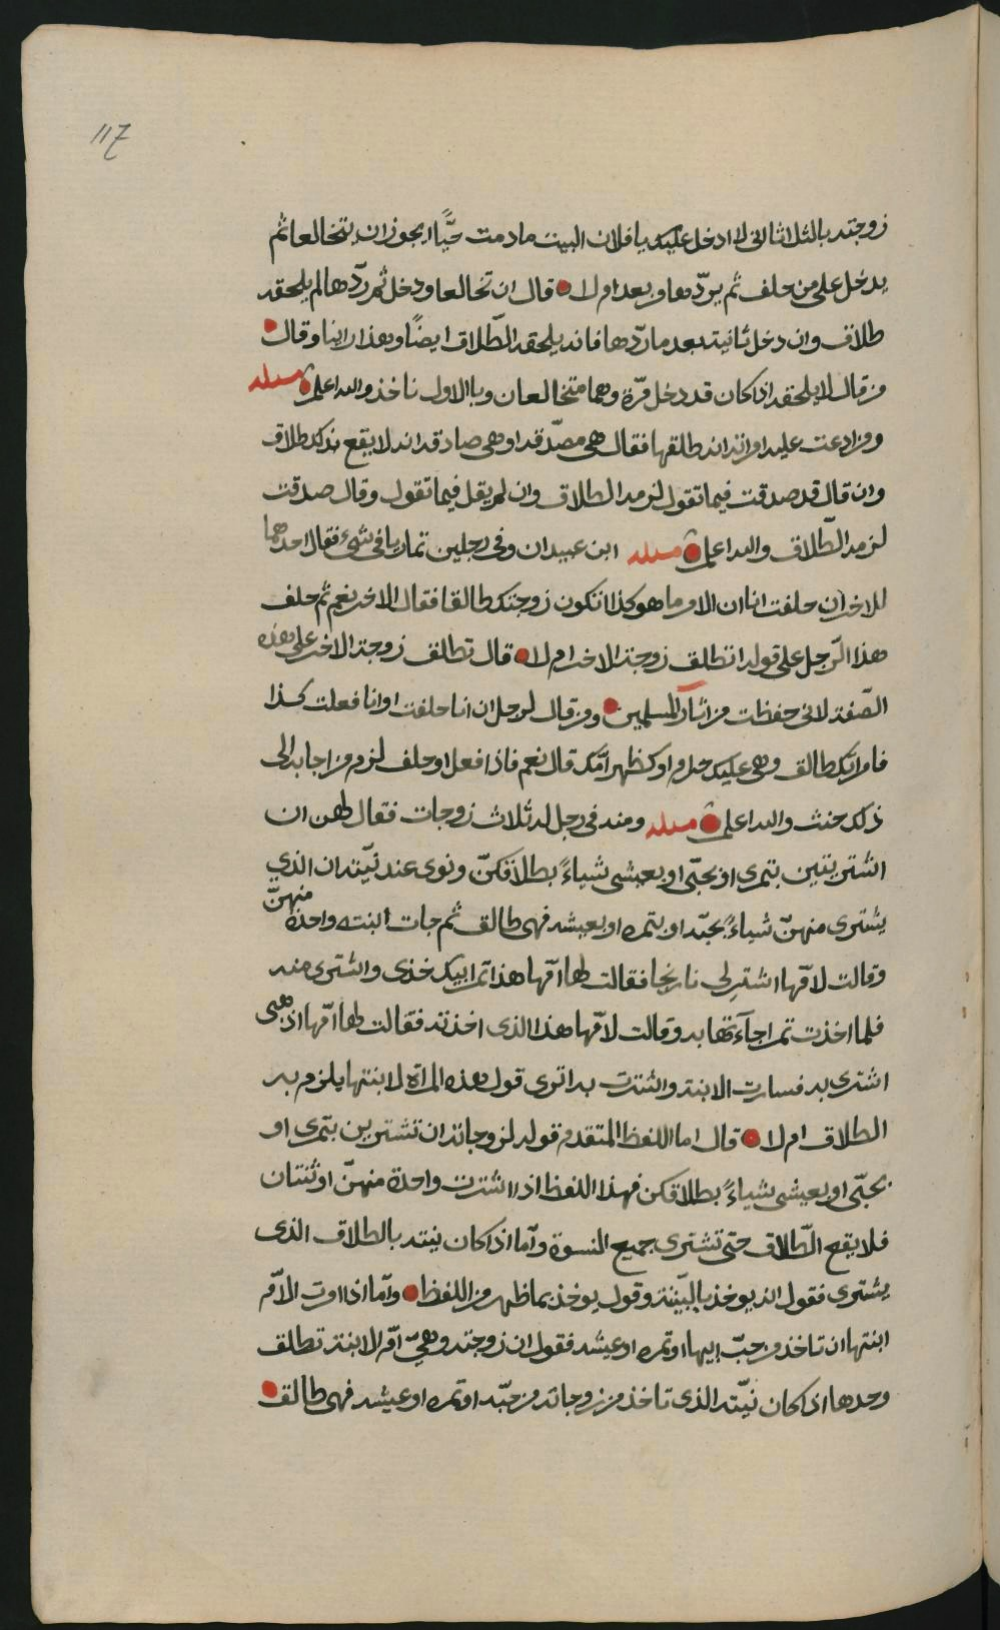 117
زوجته بالثلاث انى لا ادخل عليك يا فلان البيت ما دمت حيًّا ايجوز ان يتخالعا ثم
يدخل على من حلف ثم يردّها وبعد ام لا قال ان تخالعا ودخل ثم ردّها لم يلحقه
طلاق وان دخل ثانيته بعد ما ردّها فانه يلحقه الطّلاق ايضًا وهذا راينا وقال
من قال لا يلحقه اذا كان قد دخل مرّة وهما متخالعان وبالاول ناخذ والله اعلم مسله
ومن ادعت عليه امراته انه طلقها فقال هى مصدّقه او هى صادقه انه لا يقع بذلك طلاق
وان قال قد صدقت فيما تقول لزمه الطلاق وان لم يقل فيما تقول وقال صدقت
لزمه الطّلاق والله اعلم مسله ابن عبيدان وفى رجلين تماريا فى شىء فقال احدهما
للاخر ان حلفت انا ان الامر ما هو كذا تكون زوجتك طالقا فقال الاخر نعم ثم حلف
هذا الرّجل على قوله اتطلق زوجة الاخر ام لا قال تطلق زوجة الاخر على هذه
الصّفة لانى حفظت من اثار المسلمين ومن قال لرجل ان انا حلفت او انا فعلت كذا
فامراتك طالق وهى عليك حرام او كظهر امّك قال نعم فاذا فعل او حلف لزم من اجابه الى
ذلك حنث والله اعلم مسله ومنه فى رجل له ثلاث زوجات فقال لهن ان
اشتريتين بتمري او بحبّى او بعيشى شياءً بطلاقكنّ ونوى عند نيّته ان الذي
يشترى منهنّ شياءً بحبّه او بتمره او بعيشه فهى طالق ثم جات ابنت واحدة منهنّ
وقالت لامّها اشترِلي نارنجا فقالت لها امّها هذا تمر ابيك خذى واشترى منه
فلما اخذت تمرا جآءتها به وقالت لامّها هذا الذى اخذته فقالت لها امّها اذهبى
اشترى به فسارت الابنة واشترت به اترى قول هذه المراة لابنتها يلزم به
الطلاق ام لا قال اما اللفظ المتقدم قوله لزوجاته ان تشترين بتمرى او
بحبّى او بعيشى شياءً بطلاقكن فهذا اللفظ اذا اشترت واحدة منهنّ او ثنتان
فلا يقع الطّلاق حتى تشترى جميع النسوة وامّا اذا كان نيته بالطلاق الذى
يشترى فقول انه يوخذ بالنيّة وقول يوخذ بما ظهر من اللفظ وامّا اذا امرت الامّ
ابنتها ان تاخذ من حبّ ابيها او تمره او عيشه فقول ان زوجته وهىَ امّ الابنة تطلق
وحدها اذا كان نيّته الذى تاخذ من زوجاته من حبّه او تمره او عيشه فهى طالق